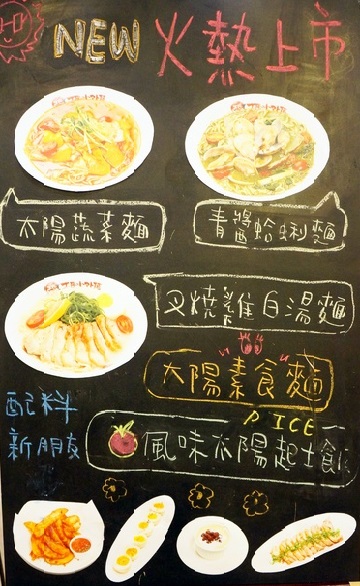 NEW 火熱上市
太陽蔬菜麵
青醬蛤蜊麵
叉燒雞白湯麵
太陽素食麵
配料
新朋友
RICE
風味太陽起士飯